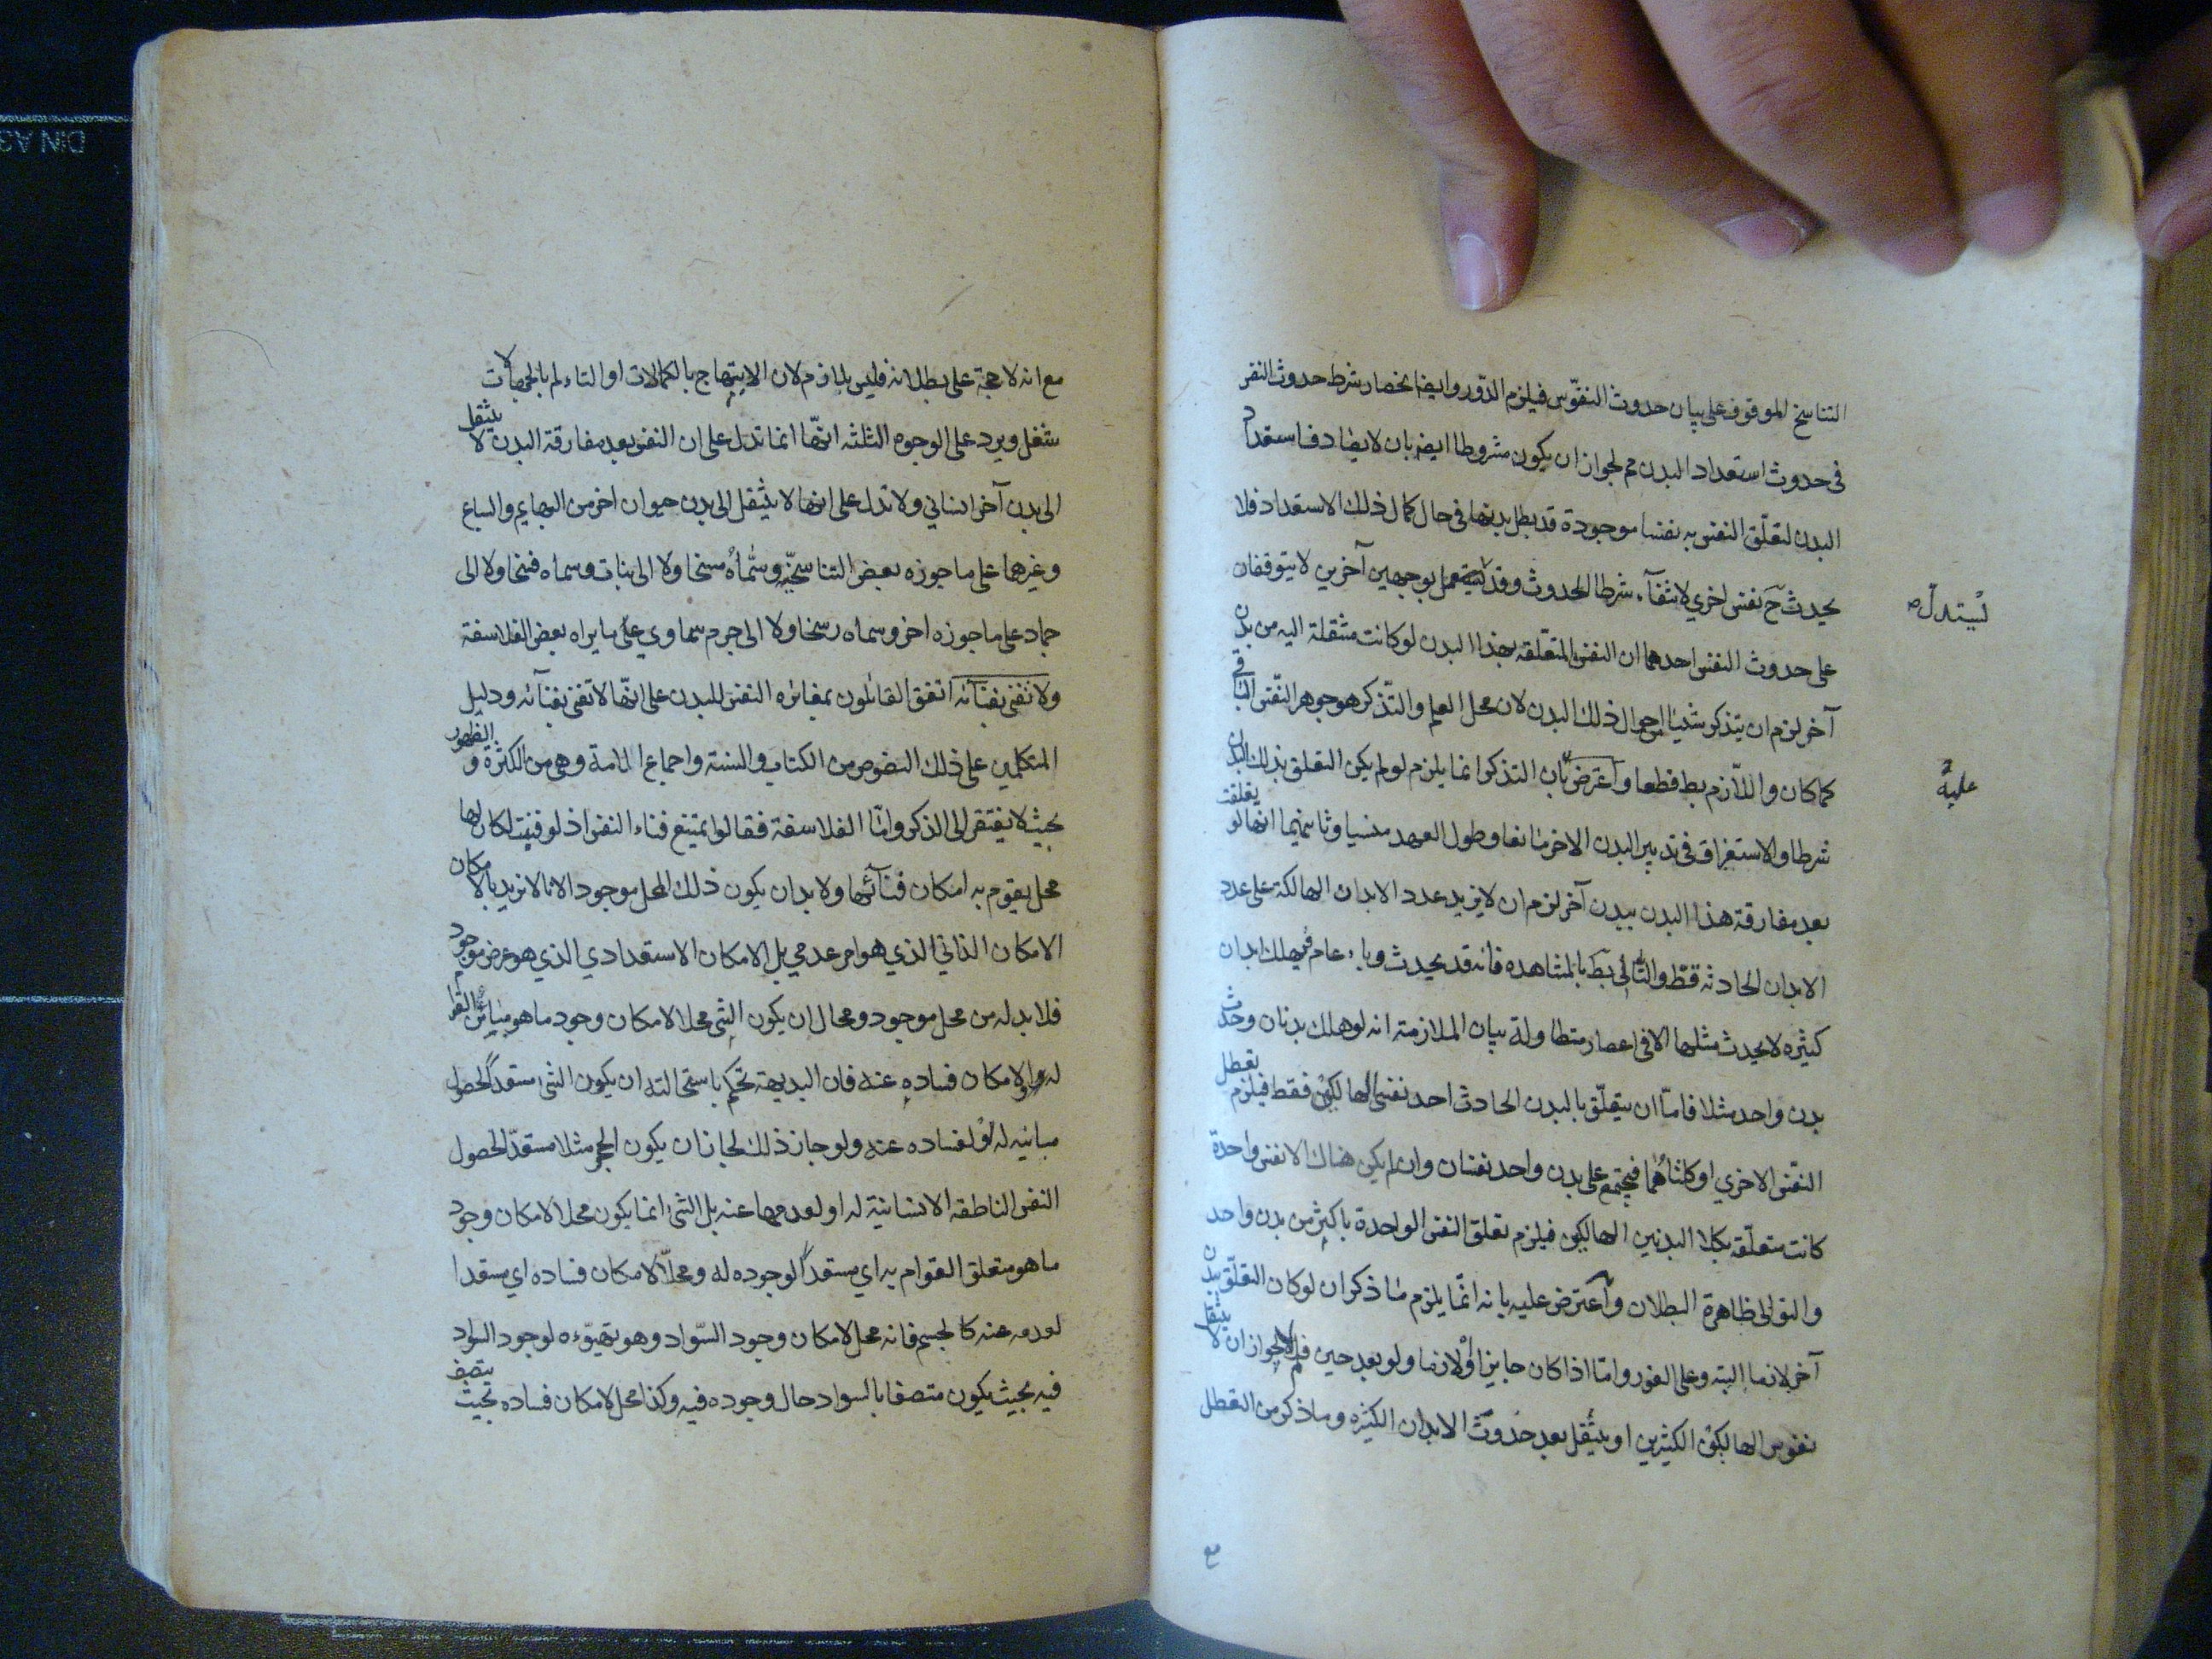 التناسخ الموقوف على بيان حدوث النفوّس فيلزم الدّور وايضا انحصار شرط حدوث النفر
فى حدوث استعداد البدن مم لجواز ان يكون مشروطا ايض بان لا يصادف استعداد
البدن لتعلّق النفس به نفسا موجودة قد بطل بدنها فى حال كمال ذلك الاستعداد فلا
يحدث ح نفس اخري لانتفآء شرط الحدوث وقد يستدل بوجهين آخرين لا يتوقفان
يستدل ص
على حدوث النفس احدهما ان النفس المتعلّقه بهذا البدن لو كانت منتقلة اليه من بدن
آخر لزم ان يتذكر شيئا من احوال ذلك البدن لان محل العلم والتّذكر هو جوهر النّفس الباقى
كما كان واللّازم بط قطعا واعترض بان التذكر انما يلزم لو لم يكن التعلق بذلك البدن
عليه
شرطا والاستغراق فى تدبير البدن الاخر مانعا وطول العهد منسيا وثانيهما انها لو تعلقت
بعد مفارقة هذا البدن ببدن آخر لزم ان لا يزيد عدد الابدان الهالكة على عدد
الابدان الحادثه قطّ والتّالى بط بالمشاهده فانه قد يحدث وباء عام فيهلك ابدان
كثيره لا يحدث مثلها الا فى اعصار متطاولة بيان الملازمة انه لو هلك بدنان وحدث
بدن واحد مثلا فامّا ان يتعلّق بالبدن الحادث احد نفسى الهالكين فقط فيلزم تعطل
النّفس الاخري او كلتاهما فيجتمع على بدن واحد نفسان وان لم يكن هناك الا نفس واحدة
كانت متعلّقه بكلا البدنين الهالكين فيلزم تعلق النفس الواحدة باكثر من بدن واحد
والتوالى ظاهرة البطلان واعترض عليه بانه انّما يلزم ما ذكر ان لو كان التعلّق ببدن
آخر لازما البته وعلى الفور وامّا اذا كان جايزا او لازما ولو بعد حين فلا لجواز ان لا ينتقل
نفوس الهالكين الكثيرين او ينتقل بعد حدوث الابدان الكثيره وما ذكر من التعطل
مع
مع انه لا حجة على بطلانه فليس بلازم لان الابتهاج بالكمالات او التاءلم بالجهالات
شغل ويرد على الوجوه الثلثه انّها انما تدل على ان النفس بعد مفارقة البدن لا ينتقل
الى بدن آخر انساني ولا تدل على انها لا ينتقل الى بدن حيوان اخر من البهايم والسباع
وغيرها على ما جوزه بعض التناسخيّه وسمّاه مسخا ولا الى نبات وسماه فسخا ولا الى
جماد على ما جوزه اخر وسماه رسخا ولا الى جرم سماوي على ما يراه بعض الفلاسفة
ولا تفنى بفنآئه اتفق القائلون بمغائره النفس للبدن على انّها لا تفنى بفنآئه ودليل
المتكلمين على ذلك النصوص من الكتاب والسنة واجماع الامة وهى من الكثرة والظهور
بحيث لا يفتقر الى الذكر وامّا الفلاسفة فقالوا يمتنع فناء النفس اذ لو فنيت لكان لها
محل يقوم به امكان فنآئها ولا بد ان يكون ذلك المحل موجودا لانا لا نريد بالامكان
الامكان الذاتي الذي هو امر عدمي بل الامكان الاستعدادي الذي هو عرض موجود
فلا بد له من محل موجود ومحال ان يكون الشى محلا لامكان وجود ما هو مبائن القوام
له او لامكان فساده عنه فان البديهة تحكم باستحالته ان يكون الشئ مستعداً لحصول
مباينه له او لفساده عنه ولو جاز ذلك لجاز ان يكون الحجر مثلا مستعدّا لحصول
النفس الناطقه الانسانية له او لعدمها عنه بل الشئ انما يكون محلا لامكان وجود
ما هو متعلق القوام به اي مستعداً لوجوده له ومحلاّ لامكان فساده اي مستعدا
لعدمه عنه كالجسم فانه محل لامكان وجود السّواد وهو تهيّوءه لوجود السواد
فيه بحيث يكون متصفا بالسواد حال وجوده فيه وكذا محل لامكان فساده بحيث يتصف